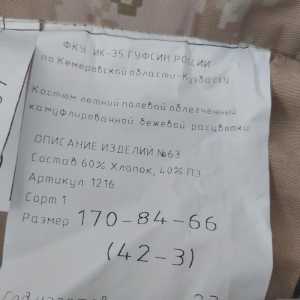 ФКУ ИК-35 ГУФСИН РОССИИ
по Кемеровской области-Кузбассу
Костюм летний полевой облегченный
камуфлированной бежевой расцветки
ОПИСАНИЕ ИЗДЕЛИИ №63
Состав 60% Хлопок, 40% ПЭ
Артикул 1216
Сорт 1
Размер 170-84-66
(42-3)